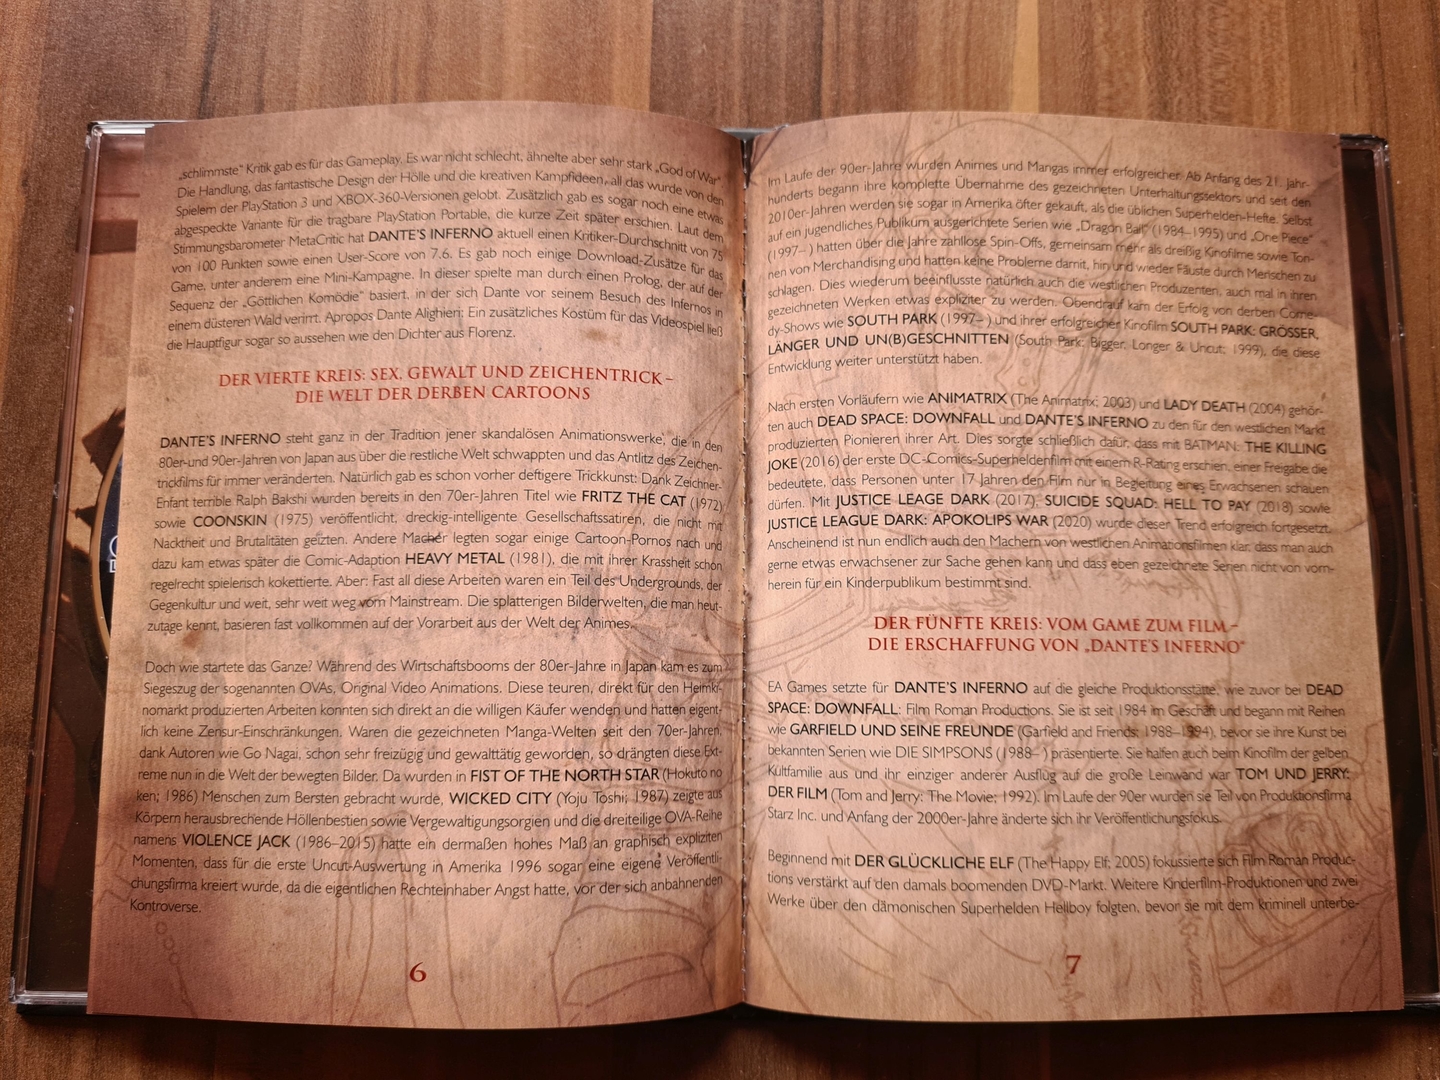 „schlimmste“ Kritik gab es für das Gameplay. Es war nicht schlecht, ähnelte aber sehr stark „God of War“
Die Handlung, das fantastische Design der Hölle und die kreativen Kampfideen, all das wurde von den
Spielern der PlayStation 3 und XBOX-360-Versionen gelobt. Zusätzlich gab es sogar noch eine etwas
abgespeckte Variante für die tragbare PlayStation Portable, die kurze Zeit später erschien. Laut dem
Stimmungsbarometer MetaCritic hat DANTE'S INFERNO aktuell einen Kritiker-Durchschnitt von 75
von 100 Punkten sowie einen User-Score von 7.6. Es gab noch einige Download-Zusätze für das
Game, unter anderem eine Mini-Kampagne. In dieser spielte man durch einen Prolog, der auf der
Sequenz der „Göttlichen Komödie“ basiert, in der sich Dante vor seinem Besuch des Infernos in
einem düsteren Wald verirrt. Apropos Dante Alighieri: Ein zusätzliches Kostüm für das Videospiel ließ
die Hauptfigur sogar so aussehen wie den Dichter aus Florenz.
DER VIERTE KREIS: SEX, GEWALT UND ZEICHENTRICK –
DIE WELT DER DERBEN CARTOONS
DANTE'S INFERNO steht ganz in der Tradition jener skandalösen Animationswerke, die in den
80er-und 90er-Jahren von Japan aus über die restliche Welt schwappten und das Antlitz des Zeichen-
trickfilms für immer veränderten. Natürlich gab es schon vorher deftigere Trickkunst: Dank Zeichner-
Enfant terrible Ralph Bakshi wurden bereits in den 70er-Jahren Titel wie FRITZ THE CAT (1972)
sowie COONSKIN (1975) veröffentlicht, dreckig-intelligente Gesellschaftssatiren, die nicht mit
Nacktheit und Brutalitäten geizten. Andere Macher legten sogar einige Cartoon-Pornos nach und
dazu kam etwas später die Comic-Adaption HEAVY METAL (1981), die mit ihrer Krassheit schon
regelrecht spielerisch kokettierte. Aber: Fast all diese Arbeiten waren ein Teil des Undergrounds, der
Gegenkultur und weit, sehr weit weg vom Mainstream. Die splatterigen Bilderwelten, die man heut-
zutage kennt, basieren fast vollkommen auf der Vorarbeit aus der Welt der Animes.
Doch wie startete das Ganze? Während des Wirtschaftsbooms der 80er-Jahre in Japan kam es zum
Siegeszug der sogenannten OVAs, Original Video Animations. Diese teuren, direkt für den Heimki-
nomarkt produzierten Arbeiten konnten sich direkt an die willigen Käufer wenden und hatten eigent-
lich keine Zensur-Einschränkungen. Waren die gezeichneten Manga-Welten seit den 70er-Jahren,
dank Autoren wie Go Nagai, schon sehr freizügig und gewalttätig geworden, so drängten diese Ext-
reme nun in die Welt der bewegten Bilder. Da wurden in FIST OF THE NORTH STAR (Hokuto no
ken; 1986) Menschen zum Bersten gebracht wurde, WICKED CITY (Yoju Toshi; 1987) zeigte aus
Körpern herausbrechende Höllenbestien sowie Vergewaltigungsorgien und die dreiteilige OVA-Reihe
namens VIOLENCE JACK (1986–2015) hatte ein dermaßen hohes Maß an graphisch expliziten
Momenten, dass für die erste Uncut-Auswertung in Amerika 1996 sogar eine eigene Veröffentli-
chungsfirma kreiert wurde, da die eigentlichen Rechteinhaber Angst hatte, vor der sich anbahnenden
Kontroverse.
6
Im Laufe der 90er-Jahre wurden Animes und Mangas immer erfolgreicher. Ab Anfang des 21. Jahr-
hunderts begann ihre komplette Übernahme des gezeichneten Unterhaltungssektors und seit den
2010er-Jahren werden sie sogar in Amerika öfter gekauft, als die üblichen Superhelden-Hefte. Selbst
auf ein jugendliches Publikum ausgerichtete Serien wie „Dragon Ball“ (1984–1995) und „One Piece“
(1997– ) hatten über die Jahre zahllose Spin-Offs, gemeinsam mehr als dreißig Kinofilme sowie Ton-
nen von Merchandising und hatten keine Probleme damit, hin und wieder Fäuste durch Menschen zu
schlagen. Dies wiederum beeinflusste natürlich auch die westlichen Produzenten, auch mal in ihren
gezeichneten Werken etwas expliziter zu werden. Obendrauf kam der Erfolg von derben Come-
dy-Shows wie SOUTH PARK (1997– ) und ihrer erfolgreicher Kinofilm SOUTH PARK: GRÖSSER,
LÄNGER UND UN(B)GESCHNITTEN (South Park: Bigger, Longer & Uncut; 1999), die diese
Entwicklung weiter unterstützt haben.
Nach ersten Vorläufern wie ANIMATRIX (The Animatrix; 2003) und LADY DEATH (2004) gehör-
ten auch DEAD SPACE: DOWNFALL und DANTE'S INFERNO zu den für den westlichen Markt
produzierten Pionieren ihrer Art. Dies sorgte schließlich dafür, dass mit BATMAN: THE KILLING
JOKE (2016) der erste DC-Comics-Superheldenfilm mit einem R-Rating erschien, einer Freigabe die
bedeutete, dass Personen unter 17 Jahren den Film nur in Begleitung eines Erwachsenen schauen
dürfen. Mit JUSTICE LEAGE DARK (2017), SUICIDE SQUAD: HELL TO PAY (2018) sowie
JUSTICE LEAGUE DARK: APOKOLIPS WAR (2020) wurde dieser Trend erfolgreich fortgesetzt.
Anscheinend ist nun endlich auch den Machern von westlichen Animationsfilmen klar, dass man auch
gerne etwas erwachsener zur Sache gehen kann und dass eben gezeichnete Serien nicht von vorn-
herein für ein Kinderpublikum bestimmt sind.
DER FÜNFTE KREIS: VOM GAME ZUM FILM –
DIE ERSCHAFFUNG VON „DANTE'S INFERNO“
EA Games setzte für DANTE'S INFERNO auf die gleiche Produktionsstätte, wie zuvor bei DEAD
SPACE: DOWNFALL: Film Roman Productions. Sie ist seit 1984 im Geschäft und begann mit Reihen
wie GARFIELD UND SEINE FREUNDE (Garfield and Friends; 1988–1994), bevor sie ihre Kunst bei
bekannten Serien wie DIE SIMPSONS (1988– ) präsentierte. Sie halfen auch beim Kinofilm der gelben
Kultfamilie aus und ihr einziger anderer Ausflug auf die große Leinwand war TOM UND JERRY:
DER FILM (Tom and Jerry: The Movie; 1992). Im Laufe der 90er wurden sie Teil von Produktionsfirma
Starz Inc. und Anfang der 2000er-Jahre änderte sich ihr Veröffentlichungsfokus.
Beginnend mit DER GLÜCKLICHE ELF (The Happy Elf; 2005) fokussierte sich Film Roman Produc-
tions verstärkt auf den damals boomenden DVD-Markt. Weitere Kinderfilm-Produktionen und zwei
Werke über den dämonischen Superhelden Hellboy folgten, bevor sie mit dem kriminell unterbe-
7